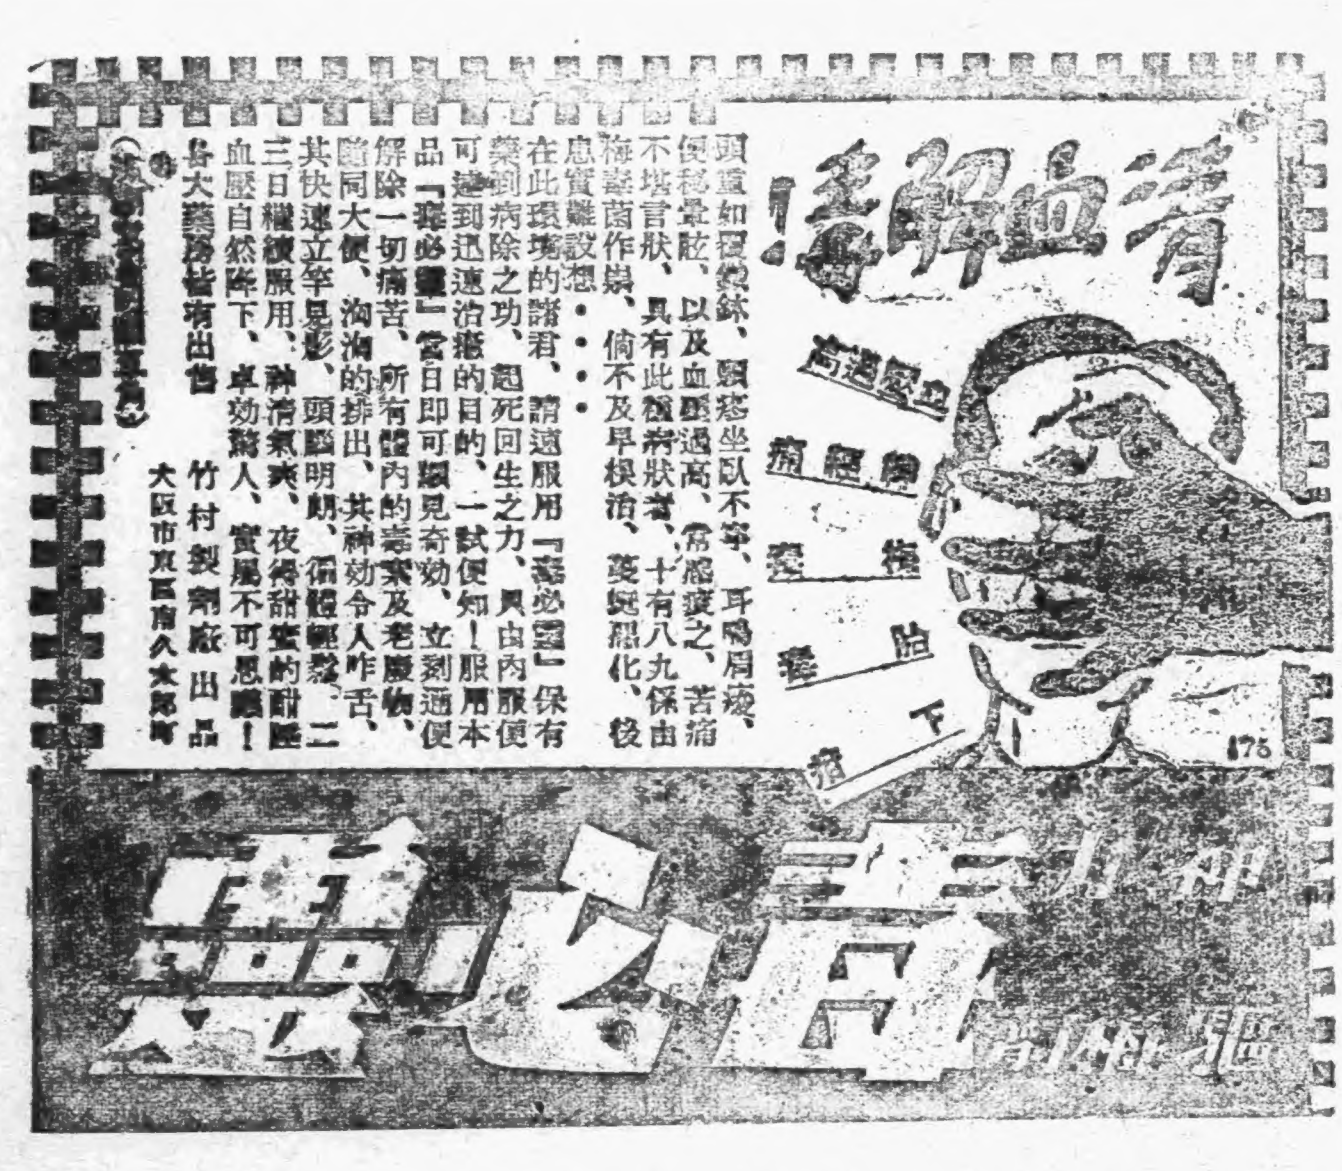 清血解毒！
血壓過高
神經痛
梅毒
胎毒
下疳
頭重如覆鐵鉢、頸疼坐臥不寧、耳鳴肩痠、
便秘暈眩、以及血壓過高、常感疲乏、苦痛
不堪言狀、具有此種病狀者、十有八九係由
梅毒菌作祟、倘不及早根治、蔓延惡化、後
患實難設想・・・・
在此環境的諸君、請速服用『毒必靈』保有
藥到病除之功、起死回生之力、具由內服便
可達到迅速治癒的目的、一試便知！服用本
品『毒必靈』當日即可顯見奇効、立刻通便
解除一切痛苦、所有體內的毒素及老廢物、
隨同大便、洶洶的排出、其神効令人咋舌、
其快速立竿見影、頭腦明朗、循體輕鬆。二
三日繼續服用、神清氣爽、夜得甜蜜的酣睡
血壓自然降下、卓効驚人、實屬不可思議！
各大藥房皆有出售
竹村製劑廠出品
大阪市東區南久太郎町
175
神力
驅梅劑
毒必靈